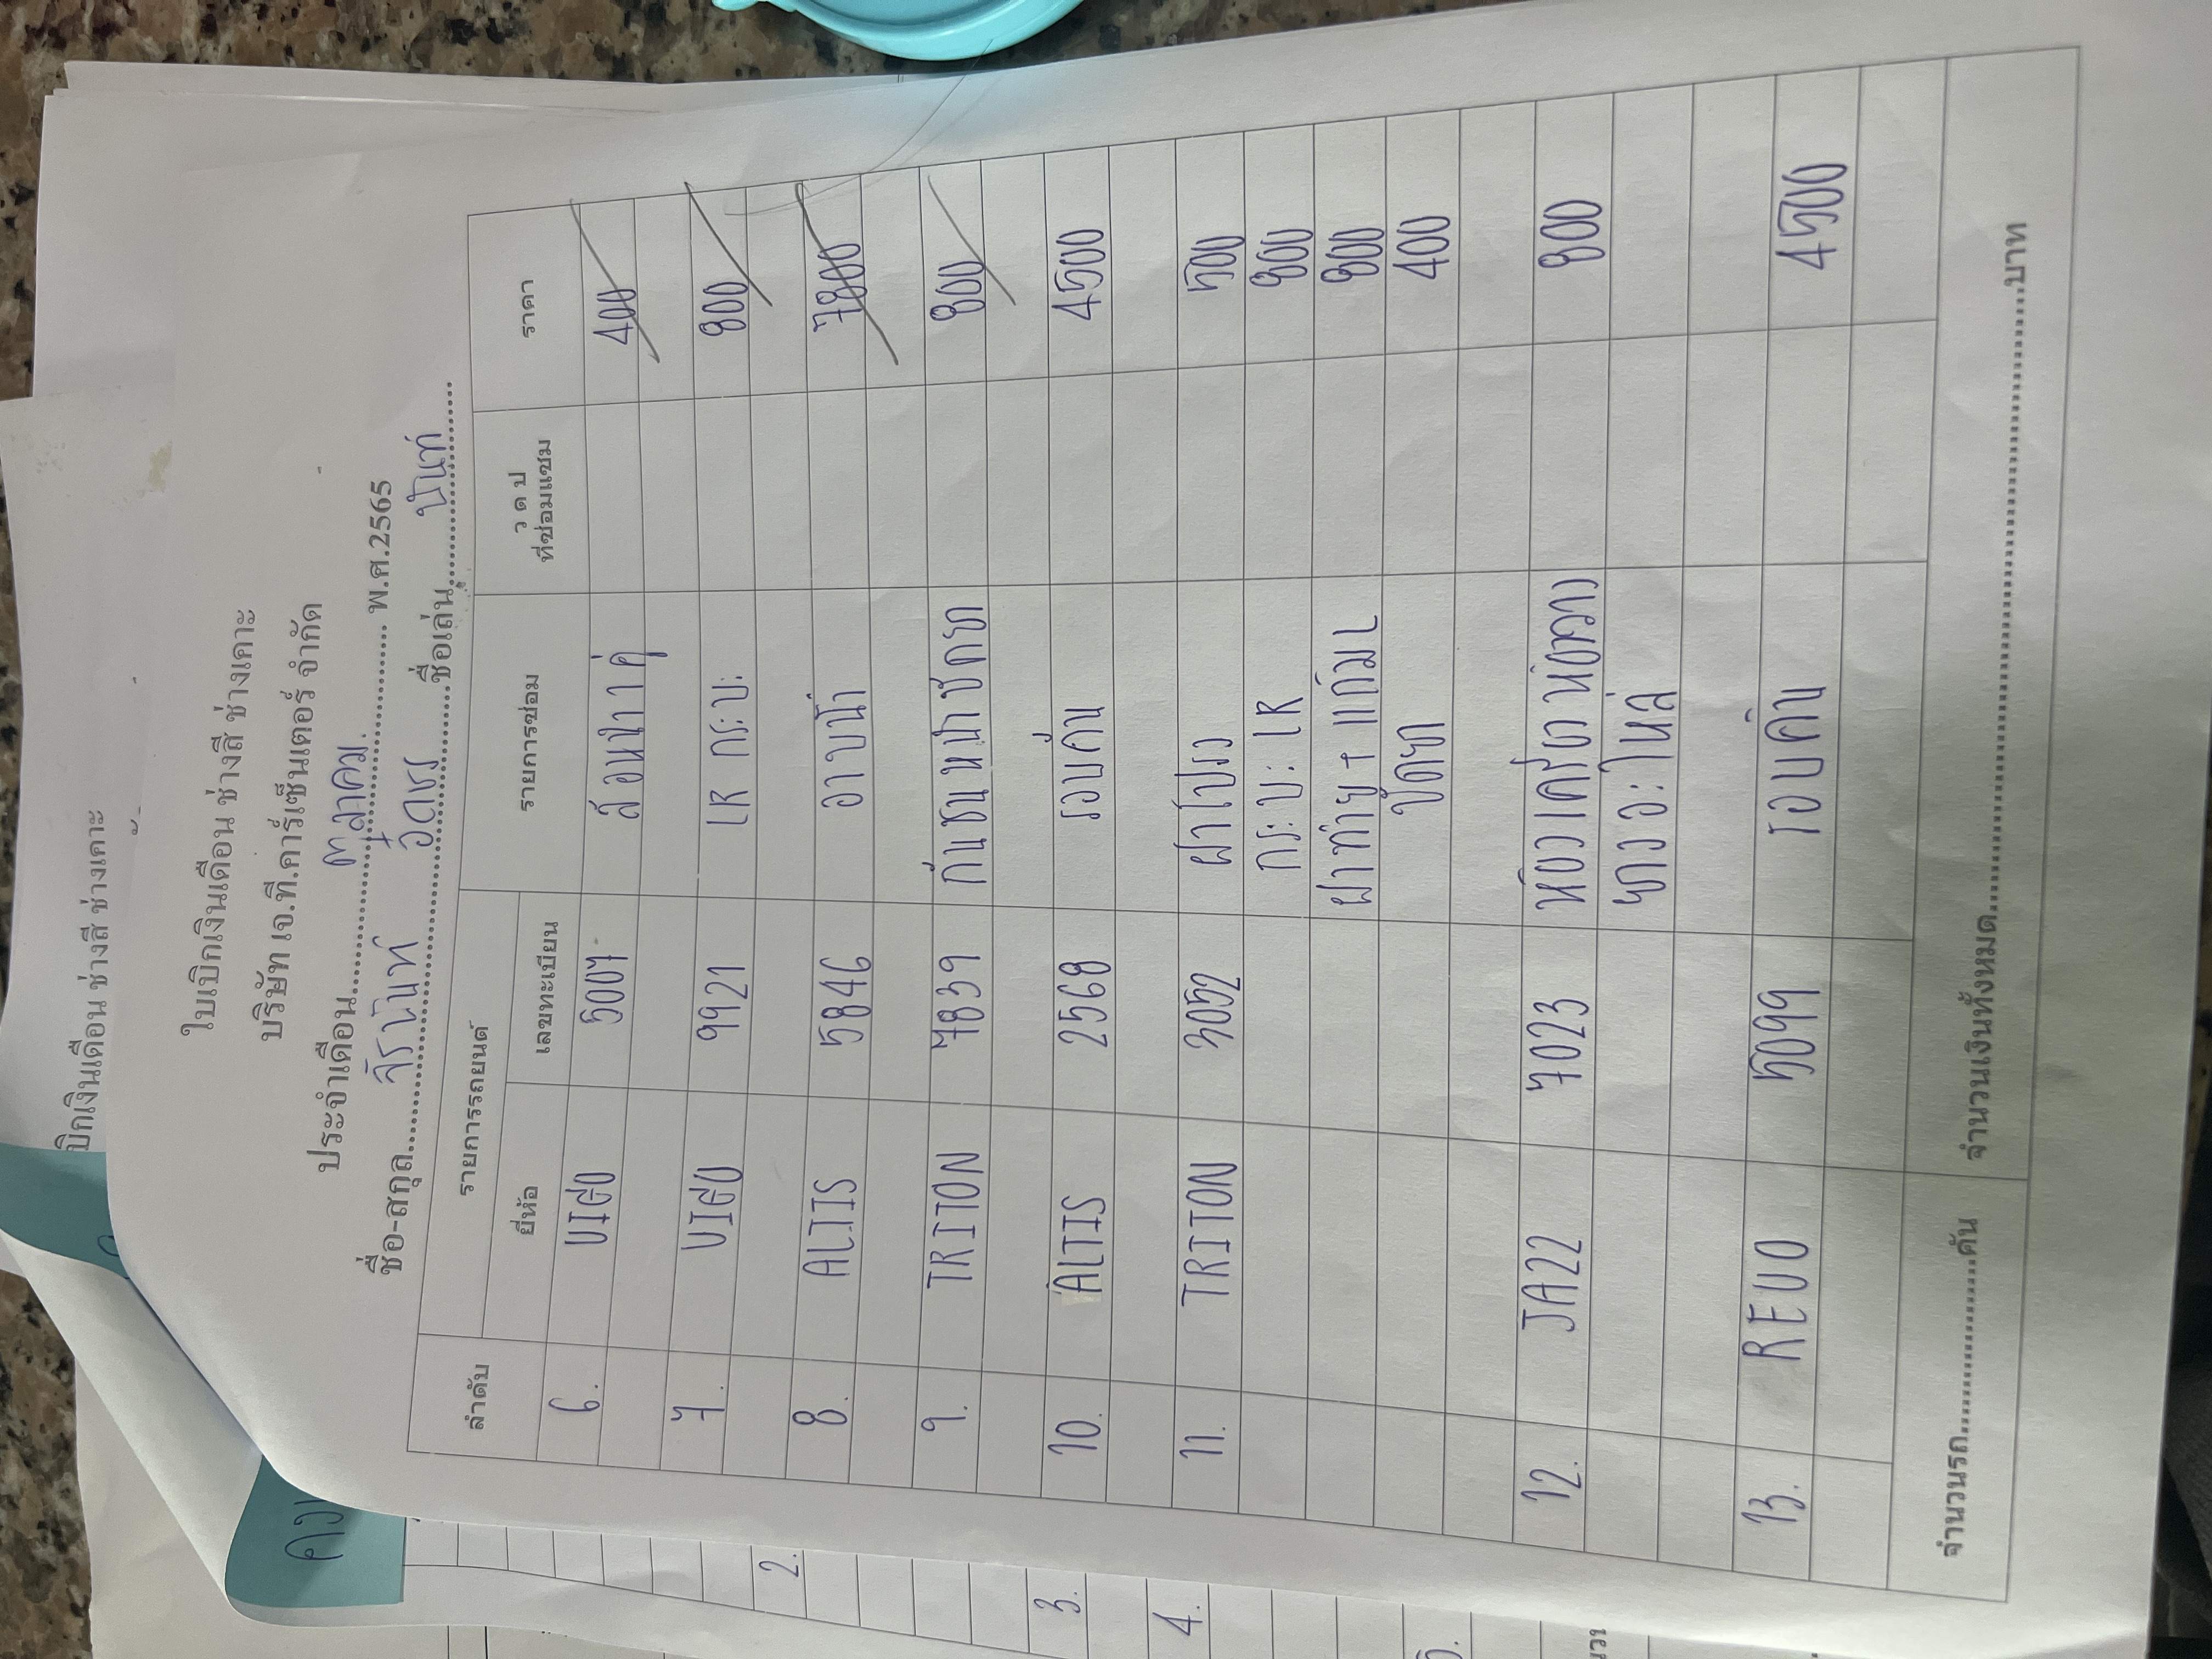 ใบเบิกเงินเดือน ช่างสี ช่างเคาะ
บริษัท เจ.ที.คาร์เซ็นเตอร์ จำกัด
ประจำเดือน ตุลาคม. พ.ศ.2565
ชื่อ-สกุล จิรนันท์ ชื่อเล่น นันท์
ลำดับ รายการรถยนต์ รายการซ่อม ว ด ป ที่ซ่อมแซม ราคา
ยี่ห้อ เลขทะเบียน
6. VIGO 5007 400
7. VIGO 9921 LR กระบะ 800
8. ALTIS 5846 อาบน้ำ 7800
9. TRITON 7839 กันชนหน้า 800
10. ALTIS 2568 รอบคัน 4500
11. TRITON 3052 ฝาโปรง 500
กระบะ LR 800
ฝาท้าย + แก้ม L 800
ปัดเงา 400
12. JAZZ 7023 800
13. REVO 5099 รอบคัน 4500
จำนวนรถ คัน จำนวนเงินทั้งหมด บาท
บิกเงินเดือน ช่างสี ช่างเคาะ
2.
3.
4.